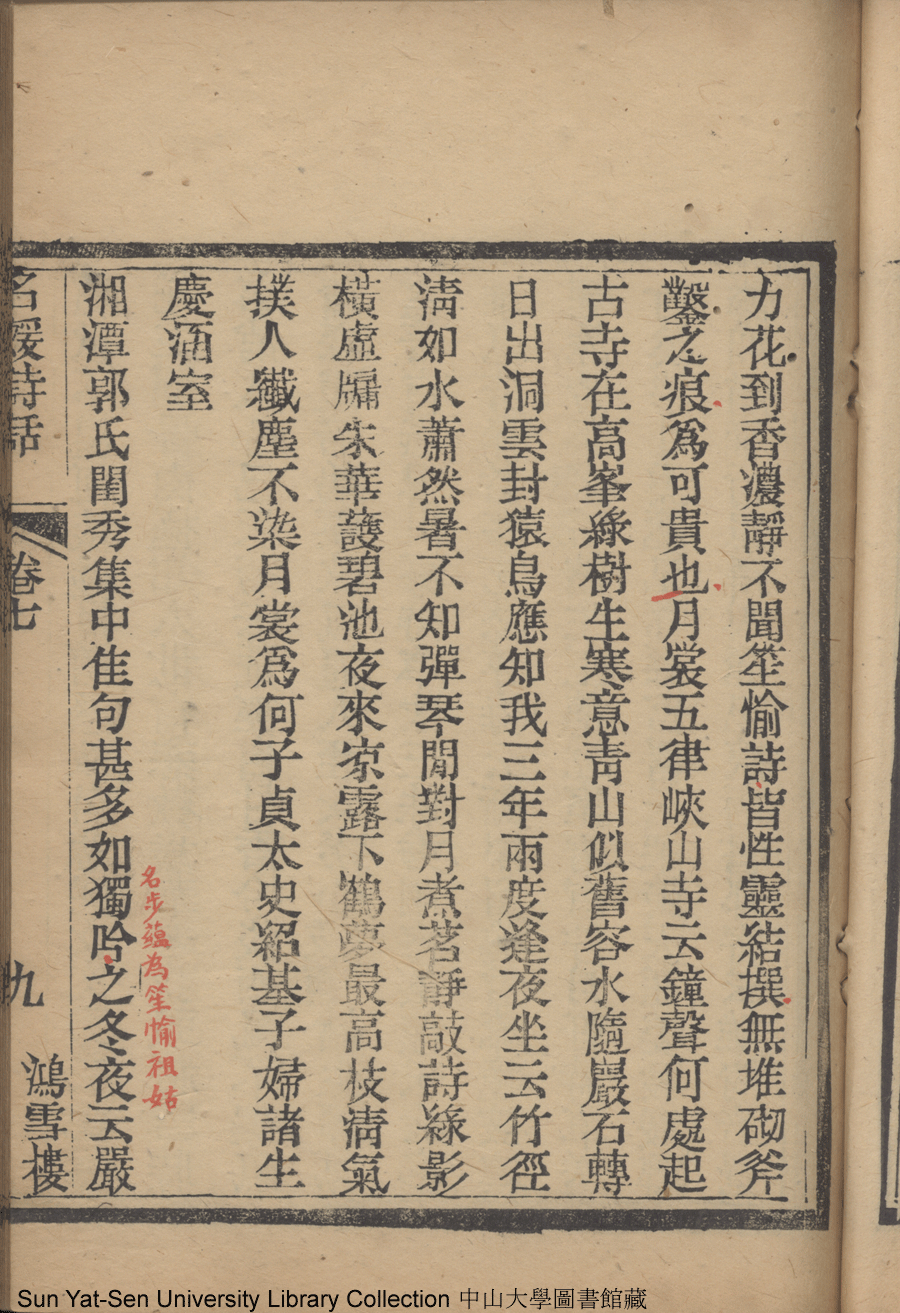 力花到香濃靜不聞笙愉詩皆性靈結撰無堆砌斧
鑿之痕爲可貴也月裳五律峽山寺云鐘聲何處起
古寺在高峯綠樹生寒意青山似舊容水隨巖石轉
日出洞雲封猿鳥應知我三年兩度逢夜坐云竹徑
淸如水蕭然暑不知彈琴閒對月煮茗靜敲詩綠影
橫虛牖朱華護碧池夜來凉露下鶴夢最高枝淸氣
撲人纖塵不染月裳爲何子貞太史紹基子婦諸生
慶涵室
名步蘊為笙愉祖姑
湘潭郭氏閨秀集中佳句甚多如獨吟之冬夜云嚴
名媛詩話 卷七 九 鴻雪樓
Sun Yat-Sen University Library Collection 中山大學圖書館藏